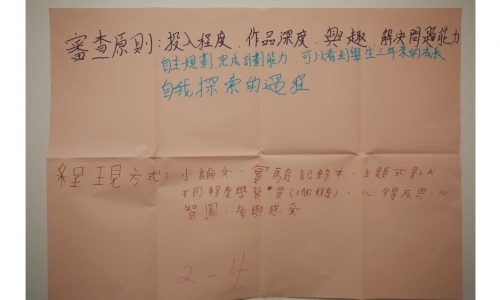 審查原則:投入程度、作品深度、興趣、解決問題能力
自主規劃完成計劃能力、可以看到學生三年來的成長
自我探索的過程
呈現方式:小論文、實驗記錄本、主題
不同程度學習單(3個程度)、心得反思、心
智圖、參與感受
2-4